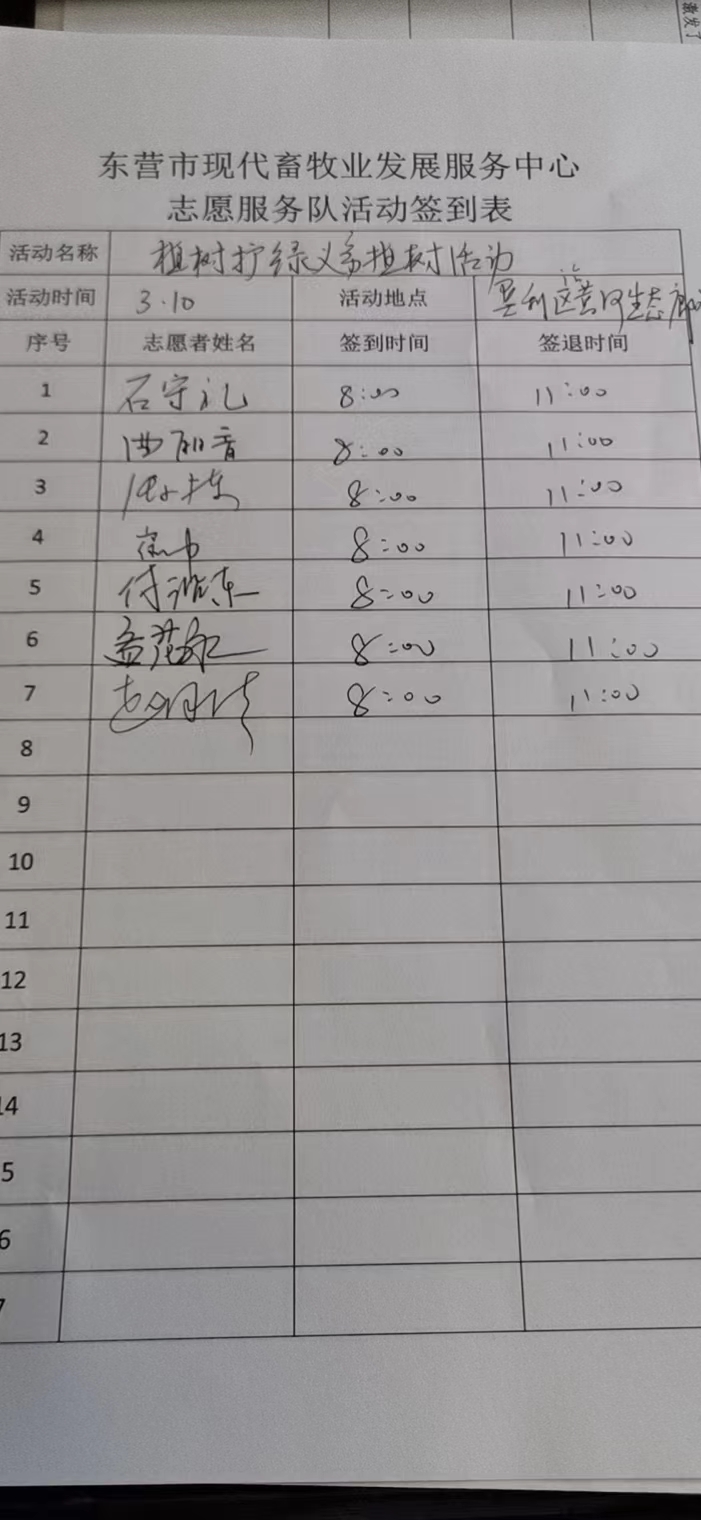 激发了
东营市现代畜牧业发展服务中心
志愿服务队活动签到表
活动名称 植树护绿义务植树活动
活动时间 3.10 活动地点 垦利区黄河生态廊
序号 志愿者姓名 签到时间 签退时间
1 石守礼 8:00 11:00
2 8:00 11:00
3 8:00 11:00
4 8:00 11:00
5 8:00 11:00
6 8:00 11:00
7 8:00 11:00
8
9
10
11
12
13
14
5
6
7